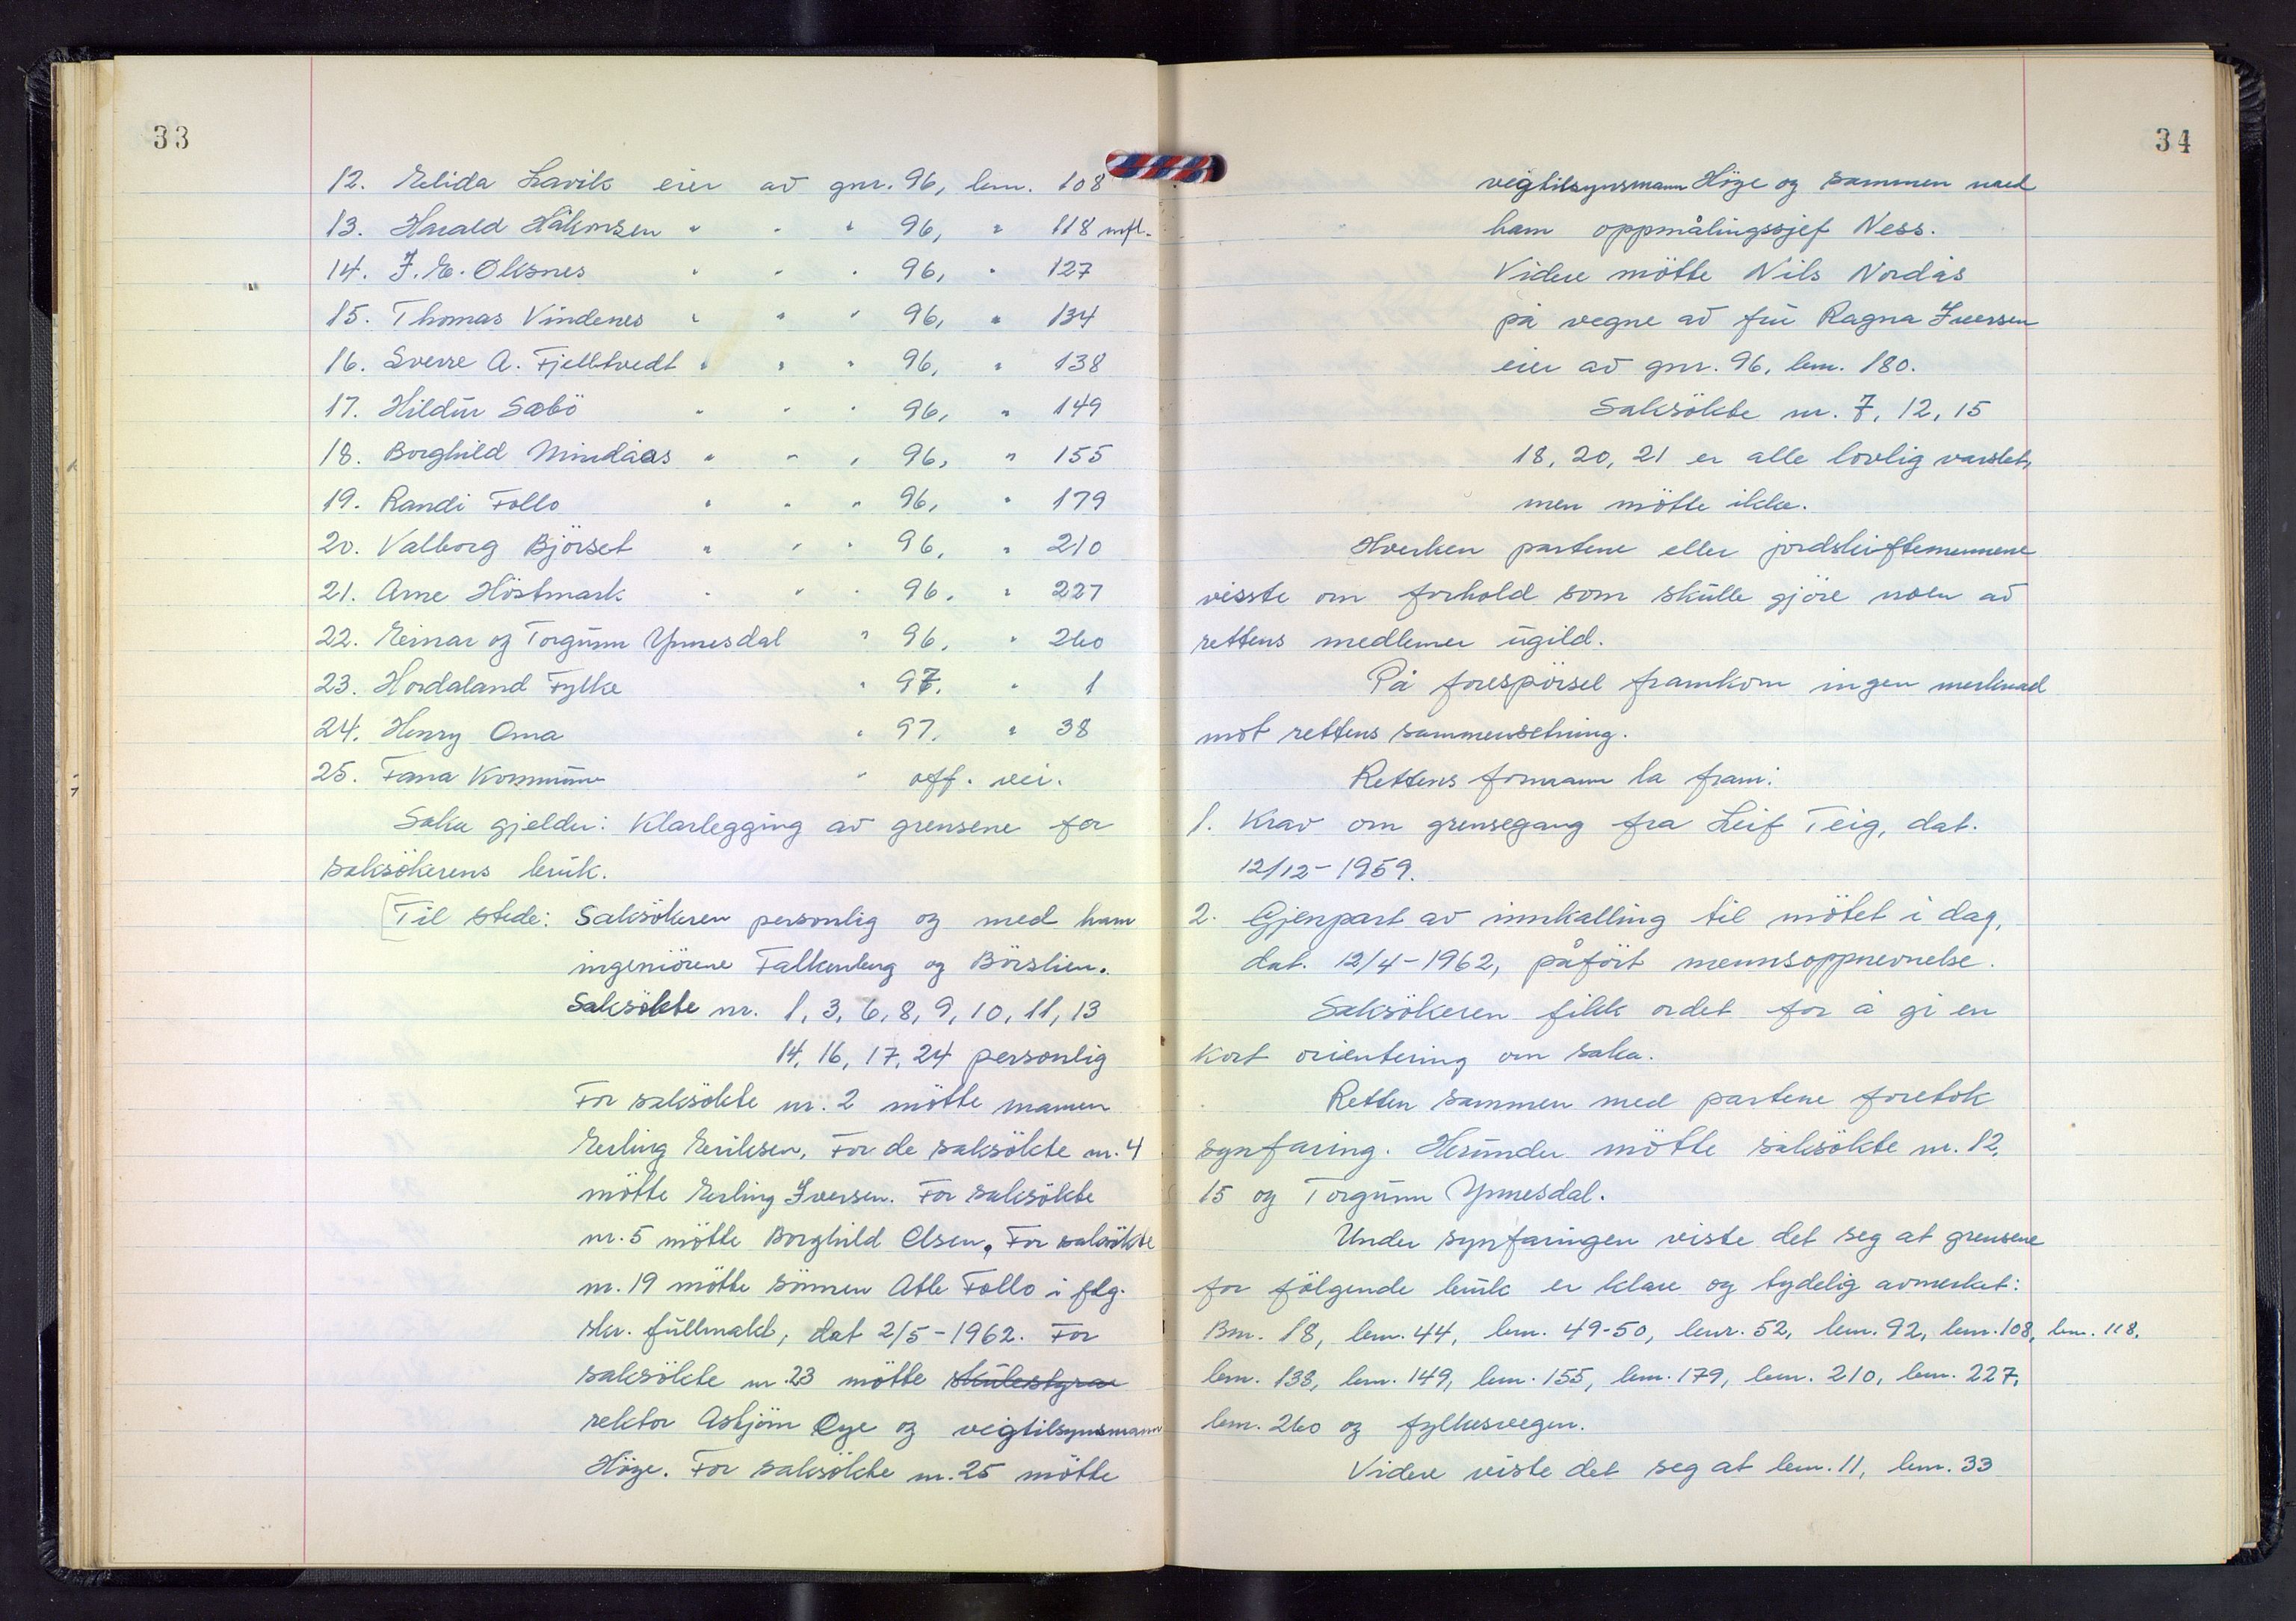 33
12. Elida Lavik eier av gnr. 96, bnr. 108
13. Harald Håkonsen " " " 96, " 118 mfl.
14. J. E. Oksnes " " " 96, " 127
15. Thomas Vindenes " " " 96, " 134
16. Sverre A. Fjelltvedt " " " 96, " 138
17. Hildur Sæbö " " " 96, " 149
18. Borghild Mindaas " " " 96, " 155
19. Randi Follo " " " 96, " 179
20. Valborg Björset " " " 96, " 210
21. Arne Höstmark " " " 96, " 227
22. Einar og Torgunn Ynnesdal " 96, " 260
23. Hordaland Fylke " 97, " 1
24. Henry Oma " 97, " 38
25. Fana Kommune " off. vei.
Saka gjelder: Klarlegging av grensene for
saksökerens bruk.
Til stede: Saksökeren personlig og med ham
ingeniörene Falkenberg og Börslien.
Saksökte nr. 1, 3, 6, 8, 9, 10, 11, 13
14, 16, 17, 24 personlig
For saksökte nr. 2 mötte mannen
Erling Eriksen, For de saksökte nr. 4
mötte Erling Iversen. For saksökte
nr. 5 mötte Borghild Olsen. For saksökte
nr. 19 mötte sönnen Atle Follo i flg.
skr. fullmakt, dat 2/5-1962. For
saksökte nr. 23 mötte skulestyrar
rektor Asbjörn Øye og vegtilsynsmann
Höge. For saksökte nr. 25 mötte
34
vegtilsynsmann Höge og sammen med
ham oppmålingssjef Ness.
Videre mötte Nils Nordås
på vegne av fru Ragna Iversen
eier av gnr. 96, bnr. 180.
Saksökte nr. 7, 12, 15
18, 20, 21 er alle lovlig varslet,
men mötte ikke.
Hverken partene eller jordskiftemennene
visste om forhold som skulle gjöre noen av
rettens medlemer ugild.
På forespörsel framkom ingen merknad
mot rettens sammensetning.
Rettens formann la fram:
1. Krav om grensegang fra Leif Teig, dat.
12/12-1959.
2. Gjenpart av innkalling til mötet i dag,
dat. 12/4-1962, påfört mennsoppnevnelse.
Saksökeren fikk ordet for å gi en
kort orientering om saka.
Retten sammen med partene foretok
synfaring. Herunder mötte saksökte nr. 12,
15 og Torgunn Ynnesdal.
Under synfaringen viste det seg at grensene
for fölgende bruk er klare og tydelig avmerket:
Bnr. 18, bnr. 44, bnr. 49-50, bnr. 52, bnr. 92, bnr. 108, bnr. 118,
bnr. 138, bnr. 149, bnr. 155, bnr. 179, bnr. 210, bnr. 227,
bnr. 260 og fylkesvegen.
Videre viste det seg at bnr. 11, bnr. 33